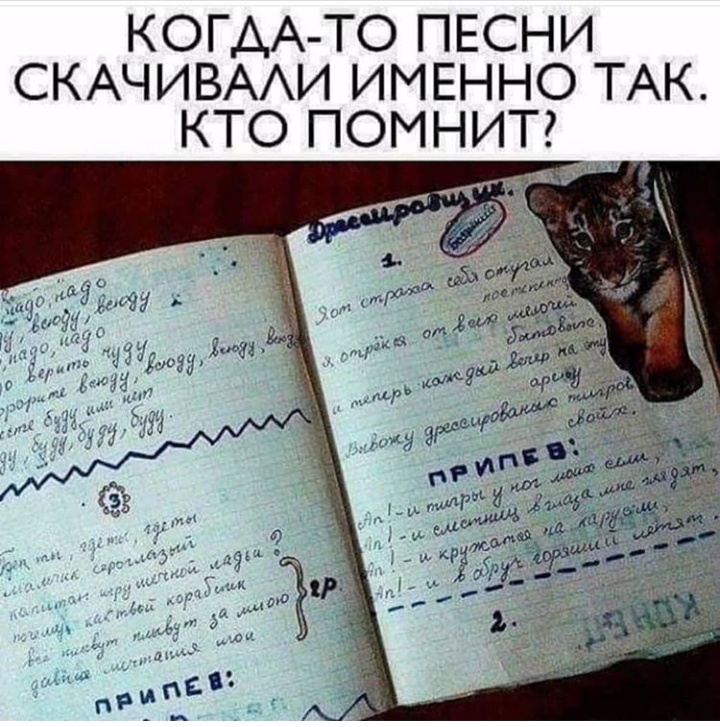 КОГДА-ТО ПЕСНИ
СКАЧИВАЛИ ИМЕННО ТАК.
КТО ПОМНИТ?
надо, надо
всюду, всюду
надо, надо
верить чуду
всюду, всюду, всюду, всюду
или нет
буду, буду, буду.
3
где ты, где ты
мальчик сероглазый
капитан игрушечной ладьи?
твой кораблик
всё плывут плывут за мною
давние мечтания мои
2р
ПРИПЕВ:
Дрессировщик.
1.
Я от страха себя отучал
постепенно
я отрёкся от всех мелочей
бытовых,
и теперь каждый вечер на эту
арену
Вывожу дрессированых тигров
своих.
ПРИПЕВ:
Ап! - и тигры у ног моих сели,
Ап! - и с лестниц в глаза мне глядят,
Ап! - и кружатся на карусели,
Ап! - и в обруч горящий летят.
2.
КОНЕЦ